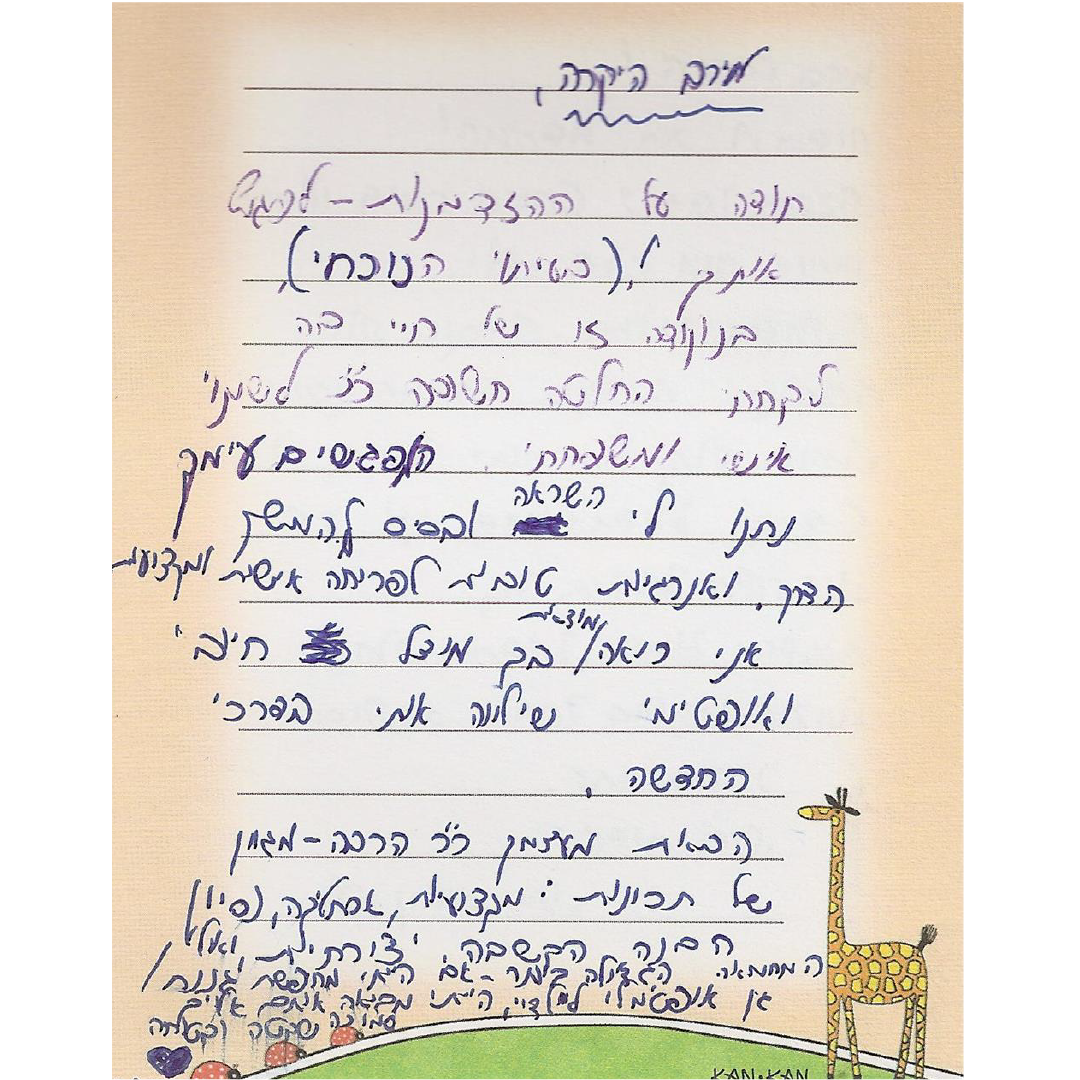 מירב היקרה,
תודה על ההזדמנות - לפגוש
אותך! (בשיתוי הנוכחי),
בנקודה זו של חיי בה
לקחתי החלטה חשובה כ"כ לגבי
אישי ומשפחתי. המפגשים עימך
נתנו לי השראה ובסיס להמשך
הדרך. ואנרגיות טובות לפריחה אישית ומקצועית
אני רואה/מוצאת בך מודל חיובי
ואופטימי שילווה אותי בדרכי
החדשה.
הבאת מעצמך כ"כ הרבה - מגוון
של תכונות: מקצועיות, אסתטיקה, נסיון,
הבנה הקשבה יצירתיות, ואולי
המחמאה הגדולה ביותר - אם הייתי מחפשת גננת/
גן אופטימלי לילדיי, הייתי מביאה אותם אלייך
סמוכה שקטה ובטוחה
KAN•KAN